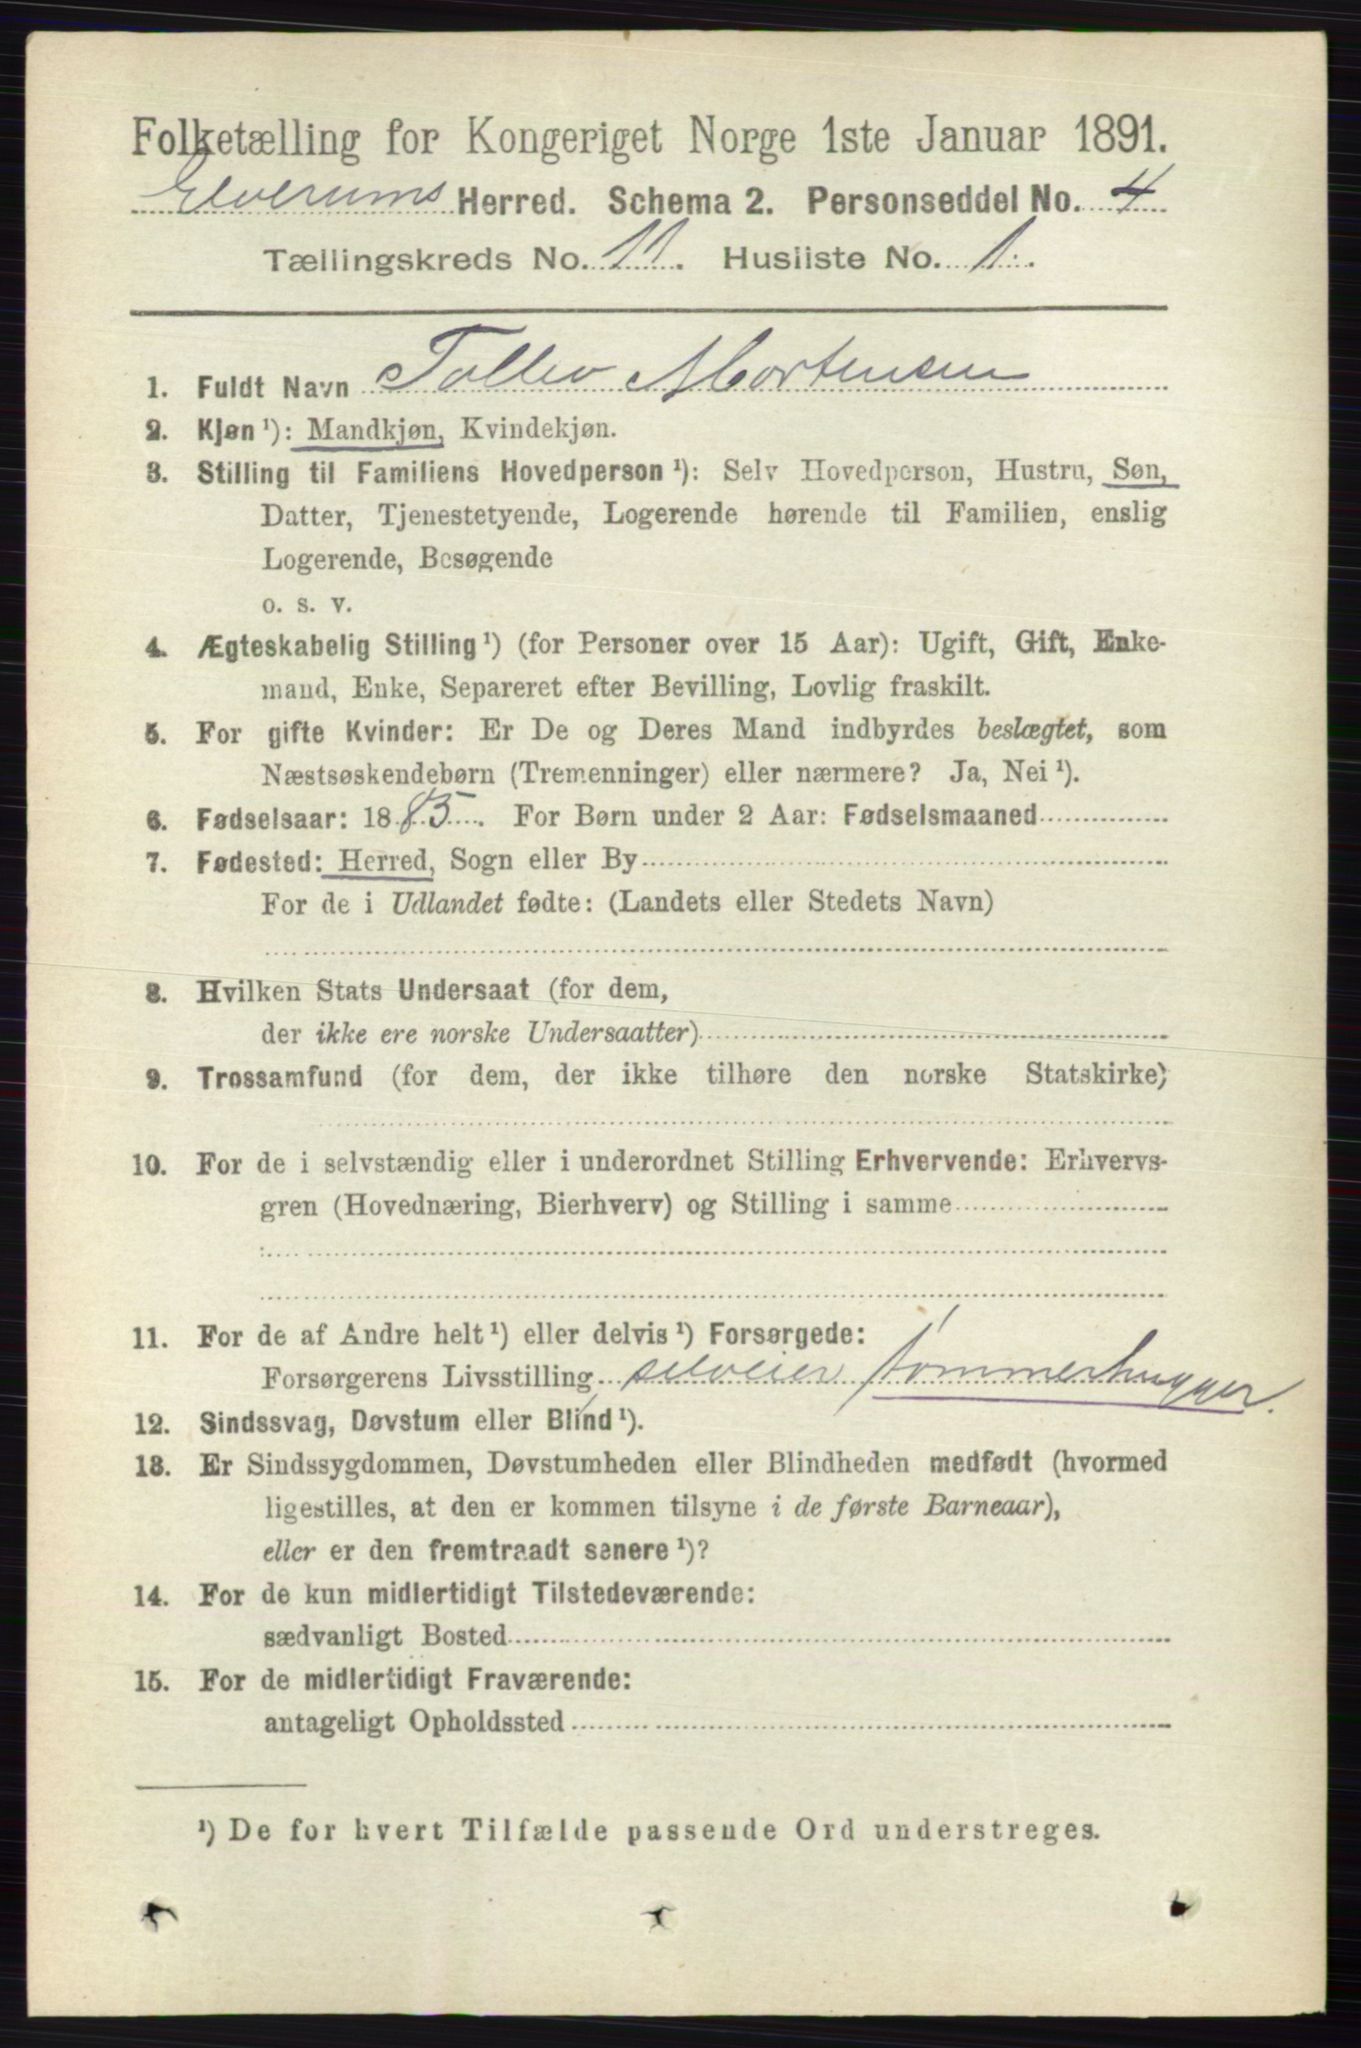 Folketælling for Kongeriget Norge 1ste Januar 1891.
Elverums Herred. Schema 2. Personseddel No. 4
Tællingskreds No. 11. Husliste No. 1.
1. Fuldt Navn Tollev Mortensen
2. Kjøn¹): Mandkjøn, Kvindekjøn.
3. Stilling til Familiens Hovedperson¹): Selv Hovedperson, Hustru, Søn,
Datter, Tjenestetyende, Logerende hørende til Familien, enslig
Logerende, Besøgende
o. s. v.
4. Ægteskabelig Stilling¹) (for Personer over 15 Aar): Ugift, Gift, Enke-
mand, Enke, Separeret efter Bevilling, Lovlig fraskilt.
5. For gifte Kvinder: Er De og Deres Mand indbyrdes beslægtet, som
Næstsøskendebørn (Tremenninger) eller nærmere? Ja, Nei¹).
6. Fødselsaar: 1885. For Børn under 2 Aar: Fødselsmaaned
7. Fødested: Herred, Sogn eller By
For de i Udlandet fødte: (Landets eller Stedets Navn)
8. Hvilken Stats Undersaat (for dem,
der ikke ere norske Undersaatter)
9. Trossamfund (for dem, der ikke tilhøre den norske Statskirke)
10. For de i selvstændig eller i underordnet Stilling Erhvervende: Erhvervs-
gren (Hovednæring, Bierhverv) og Stilling i samme
11. For de af Andre helt¹) eller delvis¹) Forsørgede:
Forsørgerens Livsstilling selveier tømmerhugger.
12. Sindssvag, Døvstum eller Blind¹).
13. Er Sindssygdommen, Døvstumheden eller Blindheden medfødt (hvormed
ligestilles, at den er kommen tilsyne i de første Barneaar),
eller er den fremtraadt senere¹)?
14. For de kun midlertidigt Tilstedeværende:
sædvanligt Bosted
15. For de midlertidigt Fraværende:
antageligt Opholdssted
¹) De for hvert Tilfælde passende Ord understreges.